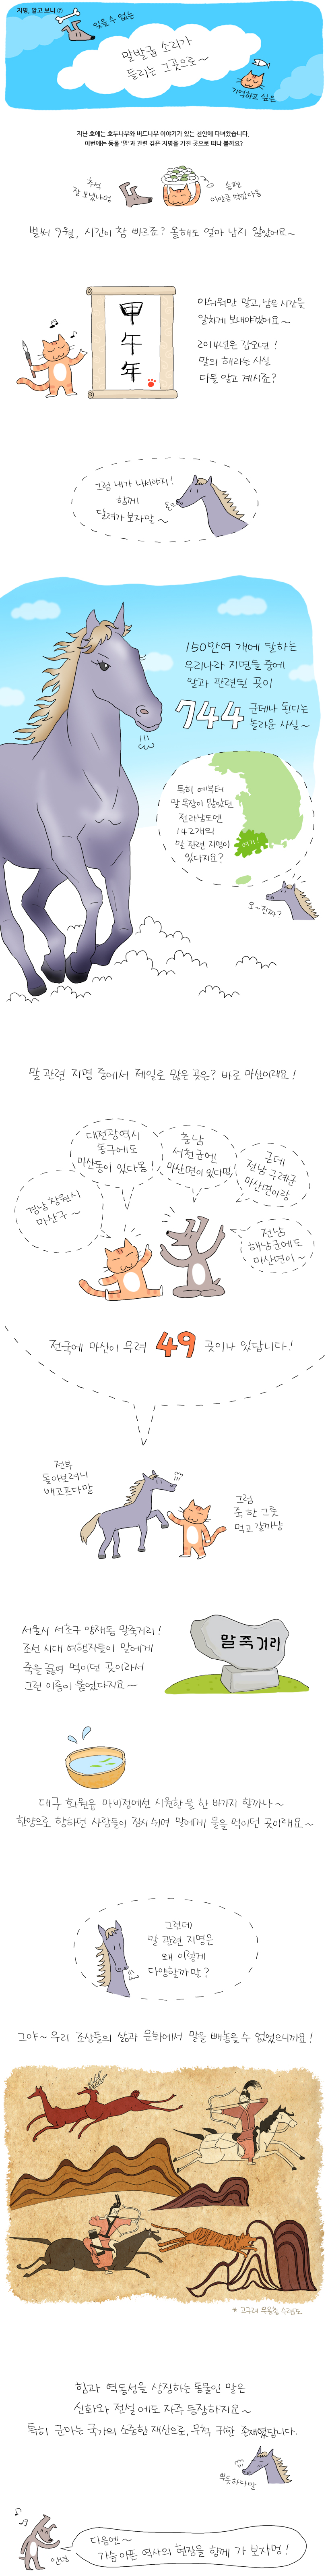 지명, 알고 보니 ⑦
잊을 수 없는
말발굽 소리가
들리는 그곳으로~
기억하고 싶은
지난 호에는 호두나무와 버드나무 이야기가 있는 천안에 다녀왔습니다.
이번에는 동물 '말'과 관련 깊은 지명을 가진 곳으로 떠나 볼까요?
추석
잘 보냈나멍
송편
이만큼 먹었다옹
벌써 9월, 시간이 참 빠르죠? 올해도 얼마 남지 않았어요~
甲
午
年
아쉬워만 말고, 남은 시간을
알차게 보내야겠어요~
2014년은 갑오년!
말의 해라는 사실
다들 알고 계시죠?
그럼 내가 나서야지!
함께
달려가 보자말~
150만여 개에 달하는
우리나라 지명들 중에
말과 관련된 곳이
744
군데나 된다는
놀라운 사실~
특히 예부터
말 목장이 많았던
전라남도엔
142개의
말 관련 지명이
있다지요?
여기!
오~진짜?
말 관련 지명 중에서 제일로 많은 곳은? 바로 마산이래요!
대전광역시
동구에도
마산동이 있다옹!
충남
서천군엔
마산면이 있다멍
근데
전남 구례군
마산면이랑
경남 창원시
마산구~
전남
해남군에도
마산면이~
전국에 마산이 무려
49
곳이나 있답니다!
전부
돌아보려니
배고프다말
그럼
죽 한 그릇
먹고 갈까냥
서울시 서초구 양재동 말죽거리!
조선 시대 여행자들이 말에게
죽을 끓여 먹이던 곳이라서
그런 이름이 붙었다지요~
말죽거리
대구 화원읍 마비정에선 시원한 물 한 바가지 할까나~
한양으로 향하던 사람들이 잠시 쉬며 말에게 물을 먹이던 곳이래요~
그런데
말 관련 지명은
왜 이렇게
다양할까말?
그야~ 우리 조상들의 삶과 문화에서 말을 빼놓을 수 없었으니까요!
* 고구려 무용총 수렵도
힘과 역동성을 상징하는 동물인 말은
신화와 전설에도 자주 등장하지요~
특히 군마는 국가의 소중한 재산으로, 무척 귀한 존재였답니다.
뿌듯하다말
안녕
다음엔~
가슴 아픈 역사의 현장을 함께 가 보자멍!